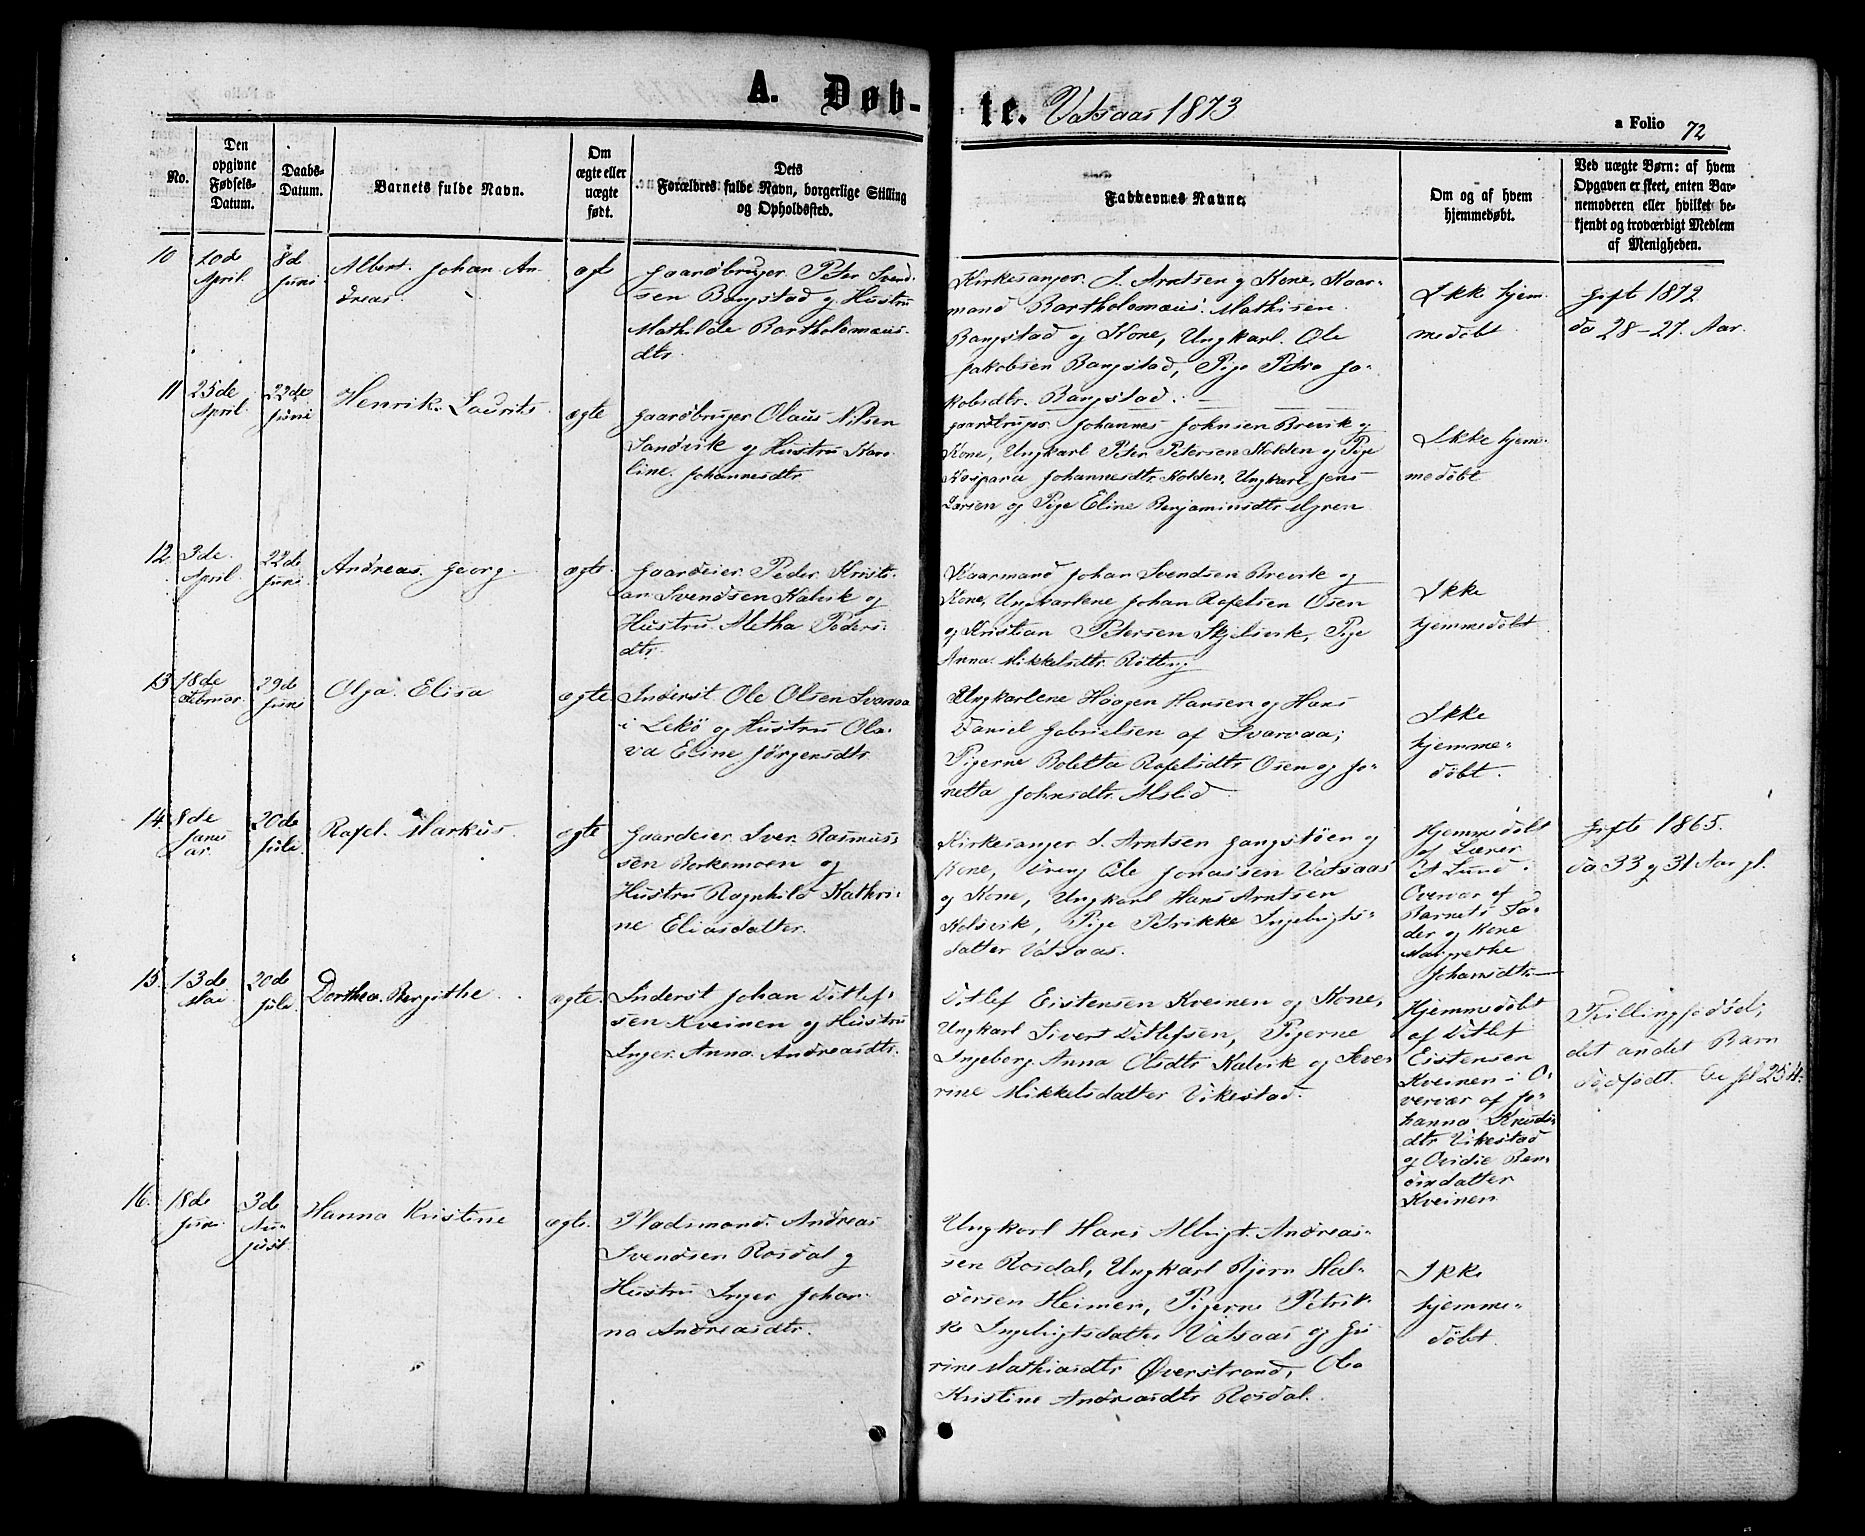 A. Døb-te. Vatsaas 1873
a Folio 72
No.
Den opgivne Fødsels-Datum.
Daabs-Datum.
Barnets fulde Navn.
Om ægte eller uægte født.
Dets Forældres fulde Navn, borgerlige Stilling og Opholdssted.
Faddernes Navne.
Om og af hvem hjemmedøbt.
Ved uægte Børn: af hvem Opgaven er skeet, enten Barnemoderen eller hvilket bekjendt og troværdigt Medlem af Menigheden.
10
10de April
8d Juni
Albert Johan An-
dreas.
ægt
Gaardbruger Peter Svend-
sen Bangstad og Hustru
Mathilde Bartholomæus-
dtr.
Kirkesanger J. Arntsen og Kone, Kaar-
mand Bartholomæus Mathisen
Bangstad og Kone, Ungkarl Ole
Jakobsen Bangstad, Pige Petra Ja-
kobsdtr. Bangstad.
Ikke hjem-
medøbt
Gifte 1872
da 28-27 Aar.
11
25de April
22de Juni
Henrik Laurits
ægte
Gaardbruger Olaus Nilsen
Sandvik og Hustru Karo-
line Johannesdtr
Gaardbruger Johannes Johnsen Brevik og
Kone, Ungkarl Peter Petersen Holden og Pige
Kaspara Johannesdtr. Holden, Ungkarl Jens
Larsen og Pige Eline Benjaminsdtr Myren
Ikke hjem-
medøbt
12
3de April
22de Juni
Andreas Georg
ægte
Gaardeier Peder Kristi-
an Svendsen Kalvik og
Hustru Aletha Peders-
dtr.
Kaarmand Johan Svendsen Brevik og
Kone, Ungkarlene Johan Rafelsen Osen
og Kristian Petersen Skjelsvik, Pige
Anna Mikkelsdtr. Røtting
Ikke
hjemmedøbt
13
18de Februar
29de Juni
Olga Elisa
ægte
Inderst Ole Olsen Svarvaa
i Lekø og Hustru Ola-
va Eline Jørgensdtr
Ungkarlene Haagen Hansen og Hans
Daniel Gabrielsen af Svarvaa;
Pigerne Boletta Rafelsdtr. Osen og Jo-
netta Johnsdtr. Alslid
Ikke
hjemme-
døbt.
14.
8de Janu
ar.
20de Juli
Rafel Markus.
ægte
Gaardeier Iver Rasmus-
sen Borkemoen og
Hustru Ragnhild Kathri-
ne Eliasdatter.
Kirkesanger J. Arntsen Gangstøen og
Kone, Dreng Ole Jonassen Vatsaas
og Kone, Ungkarl Hans Arntsen
Kolsvik, Pige Petrikke Ingebrigts-
datter Vatsaas.
Hjemmedøbt
af Lærer
P. Lund
Overvær af
Barnets Fa-
der og Kone
Margrethe
Johansdtr
Gifte 1865.
da 33 og 31 Aar gl.
15
13de Mai
20de Juli
Dorthea Bergithe
ægte.
Inderst Johan Ditlef-
sen Kveinen og Hustru
Inger Anna Andreasdtr.
Ditlef Eistensen Kveinen og Kone,
Ungkarl Sivert Ditlefsen, Pigerne
Ingeborg Anna Olsdtr Kalvik og Seve-
rine Mikkelsdatter Vikestad.
Hjemmedøbt
af Ditlef
Eistensen
Kveinen i O-
vervær af Jo-
hanna Knuds-
dtr Vikestad
og Ovidie Ben-
datter
Kveinen
Tvillingfødsel;
det andet Barn
dødfødt.
16.
18de Juni
3de Au-
gust
Hanna Kristine
ægte.
Pladsmand Andreas
Svendsen Rosdal og
Hustru Inger Johan-
na Andreasdtr.
Ungkarl Hans Albrigt Andreas-
sen Rosdal, Ungkarl Bjørn Hal-
dorsen Heimen, Pigerne Petrik-
ke Ingebrigtsdatter Vatsaas og Gu-
rine Mathiasdtr Øverstrand, Ole
Kristine Andreasdtr Rosdal.
Ikke
hjemme-
døbt